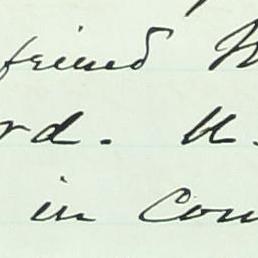 friend
rd. U.
in Con